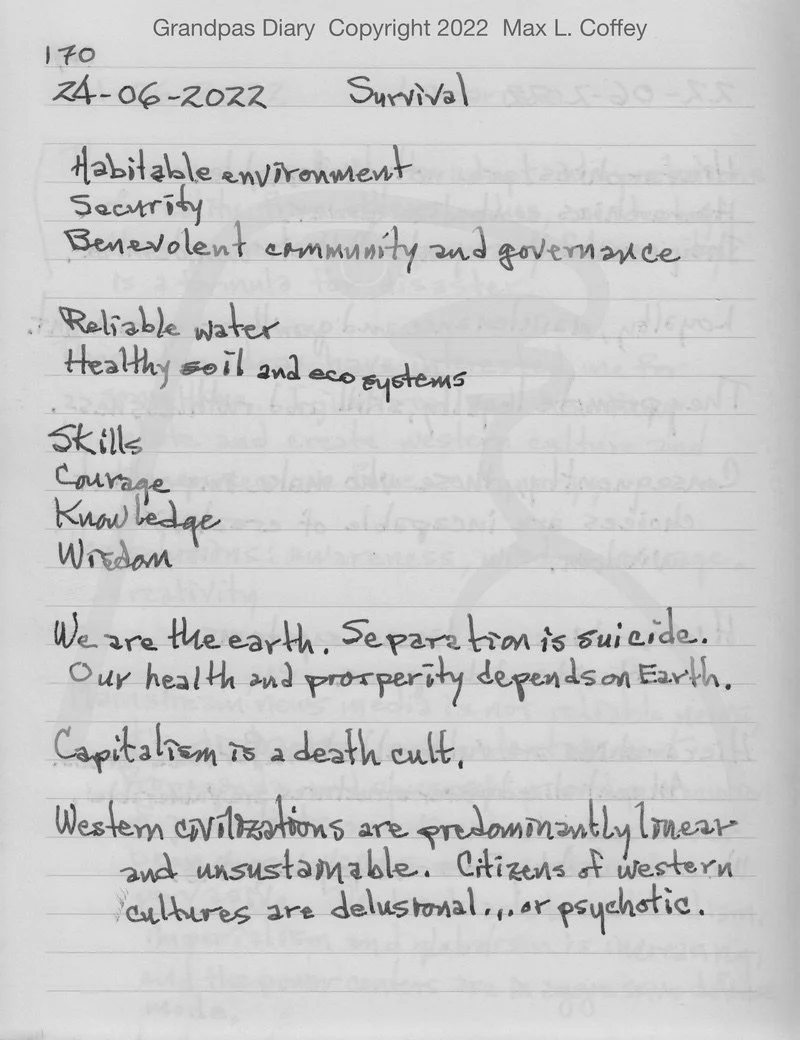 Grandpas Diary Copyright 2022 Max L. Coffey
170
24-06-2022 Survival
Habitable environment
Security
Benevolent community and governance
Reliable water
Healthy soil and eco systems
Skills
Courage
Knowledge
Wisdom
We are the earth. Separation is suicide.
Our health and prosperity depends on Earth.
Capitalism is a death cult.
Western civilizations are predominantly linear
and unsustainable. Citizens of western
cultures are delusional... or psychotic.